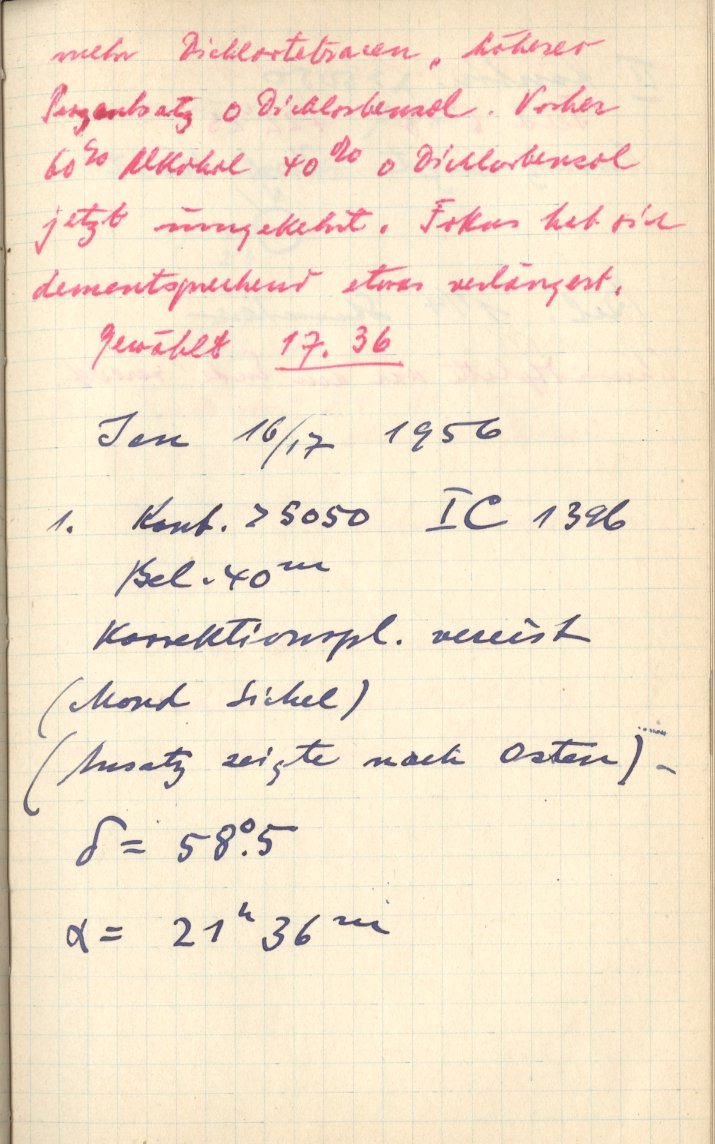 mehr Dichlortetracen, höherer
Prozentsatz o Dichlorbenzol. Vorher
60% Alkohol 40% o Dichlorbenzol
jetzt umgekehrt. Fokus hat sich
dementsprechend etwas verlängert.
Gewählt 17.36
Jan 16/17 1956
1. Kont. >5050 IC 1396
Bel. 40ᵐ
Korrektionspl. vereist
(Mond Sichel)
(Ansatz zeigte nach Osten)
δ = 58°.5
α = 21ʰ 36ᵐ